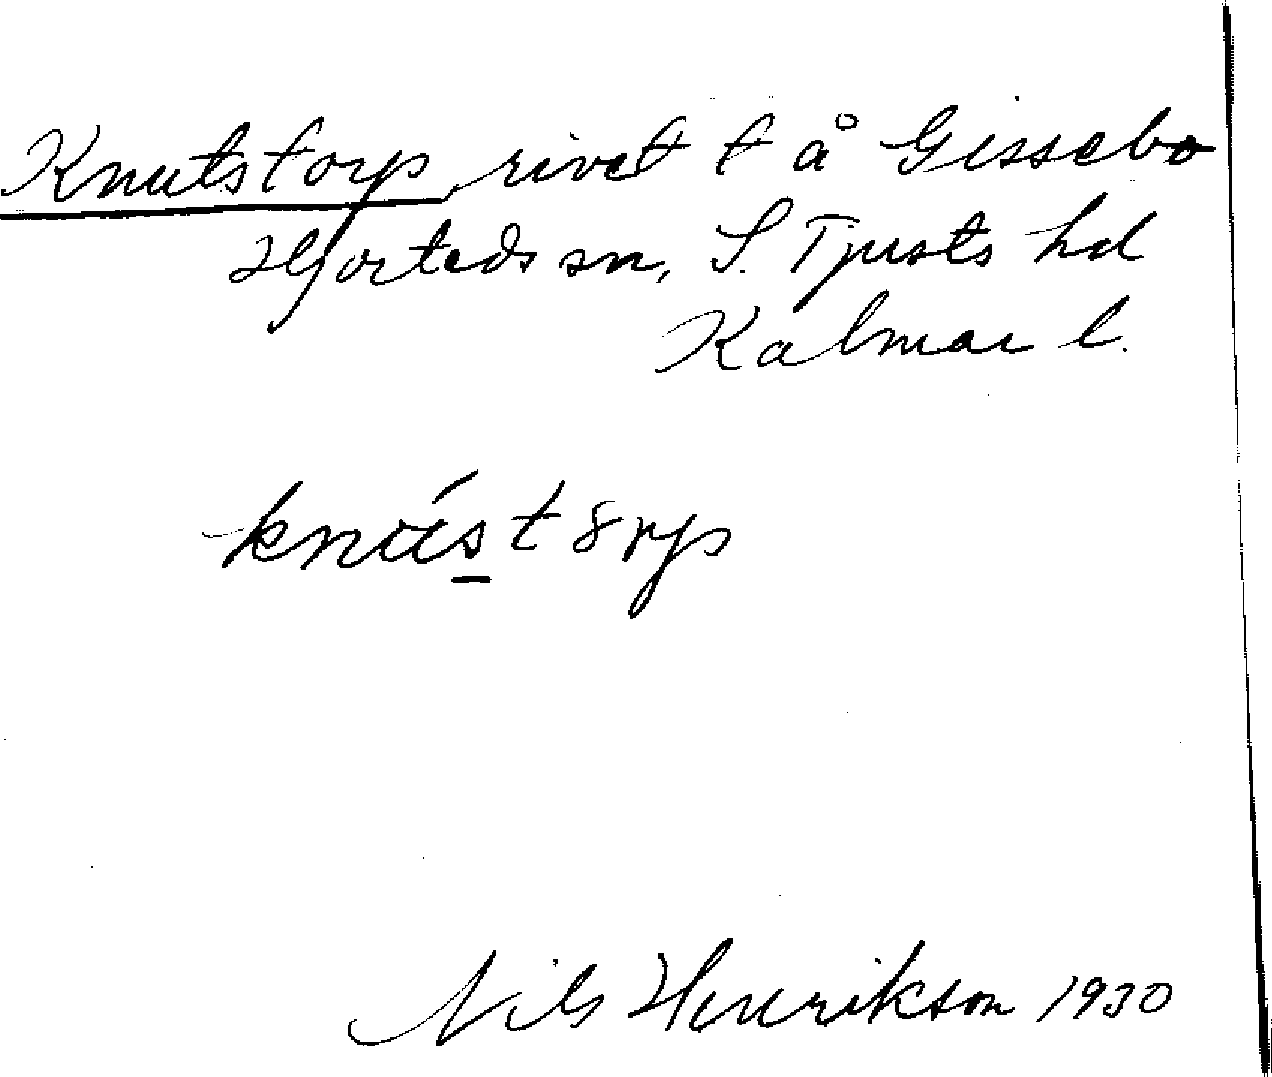 Knutstorp, rivet t å Gissebo
Hjorteds sn, S. Tjusts hd
Kalmar l.
Nils Henrikson 1930